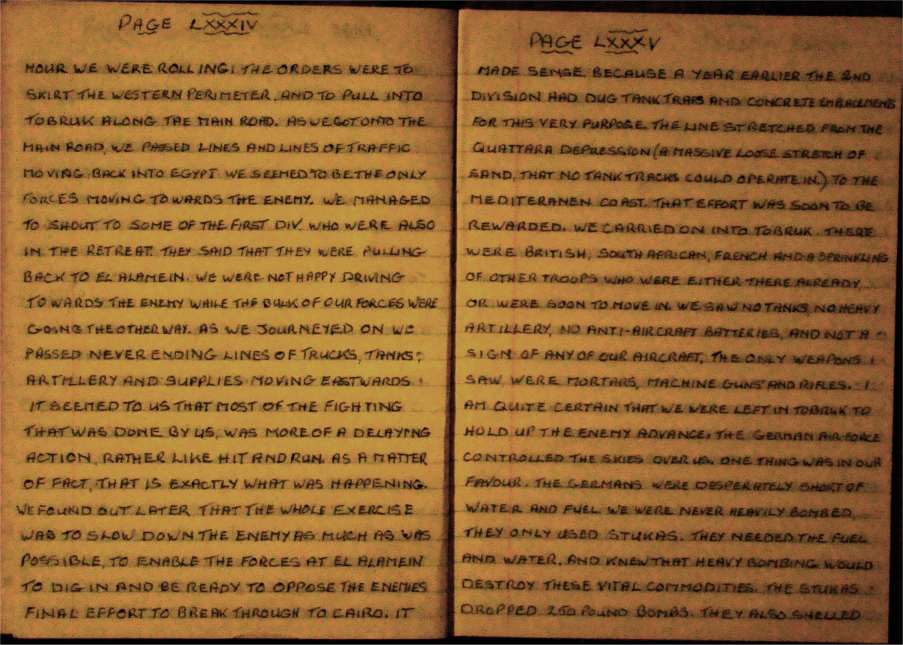 PAGE LXXXIV
HOUR WE WERE ROLLING! THE ORDERS WERE TO
SKIRT THE WESTERN PERIMETER, AND TO PULL INTO
TOBRUK ALONG THE MAIN ROAD. AS WE GOT ONTO THE
MAIN ROAD, WE PASSED LINES AND LINES OF TRAFFIC
MOVING BACK INTO EGYPT. WE SEEMED TO BE THE ONLY
FORCES MOVING TOWARDS THE ENEMY. WE MANAGED
TO SHOUT TO SOME OF THE FIRST DIV. WHO WERE ALSO
IN THE RETREAT. THEY SAID THAT THEY WERE PULLING
BACK TO EL ALAMEIN. WE WERE NOT HAPPY DRIVING
TOWARDS THE ENEMY WHILE THE BULK OF OUR FORCES WERE
GOING THE OTHER WAY. AS WE JOURNEYED ON WE
PASSED NEVER ENDING LINES OF TRUCKS, TANKS,
ARTILLERY AND SUPPLIES MOVING EASTWARDS.
IT SEEMED TO US THAT MOST OF THE FIGHTING
THAT WAS DONE BY US, WAS MORE OF A DELAYING
ACTION, RATHER LIKE HIT AND RUN. AS A MATTER
OF FACT, THAT IS EXACTLY WHAT WAS HAPPENING.
WE FOUND OUT LATER THAT THE WHOLE EXERCISE
WAS TO SLOW DOWN THE ENEMY AS MUCH AS WAS
POSSIBLE, TO ENABLE THE FORCES AT EL ALAMEIN
TO DIG IN AND BE READY TO OPPOSE THE ENEMIES
FINAL EFFORT TO BREAK THROUGH TO CAIRO. IT
PAGE LXXXV
MADE SENSE. BECAUSE A YEAR EARLIER THE 2ND
DIVISION HAD DUG TANK TRAPS AND CONCRETE EMBACEMENTS
FOR THIS VERY PURPOSE. THE LINE STRETCHED FROM THE
QUATTARA DEPRESSION (A MASSIVE LOOSE STRETCH OF
SAND, THAT NO TANK TRACKS COULD OPERATE IN.) TO THE
MEDITERANEN COAST. THAT EFFORT WAS SOON TO BE
REWARDED. WE CARRIED ON INTO TOBRUK. THERE
WERE BRITISH, SOUTH AFRICAN, FRENCH AND A SPRINKLING
OF OTHER TROOPS WHO WERE EITHER THERE ALREADY
OR WERE SOON TO MOVE IN. WE SAW NO TANKS, NO HEAVY
ARTILLERY, NO ANTI-AIRCRAFT BATTERIES, AND NOT A
SIGN OF ANY OF OUR AIRCRAFT, THE ONLY WEAPONS I
SAW WERE MORTARS, MACHINE GUNS AND RIFLES. I
AM QUITE CERTAIN THAT WE WERE LEFT IN TOBRUK TO
HOLD UP THE ENEMY ADVANCE, THE GERMAN AIR FORCE
CONTROLLED THE SKIES OVER US. ONE THING WAS IN OUR
FAVOUR. THE GERMANS WERE DESPERATELY SHORT OF
WATER AND FUEL. WE WERE NEVER HEAVILY BOMBED,
THEY ONLY USED STUKAS. THEY NEEDED THE FUEL
AND WATER, AND KNEW THAT HEAVY BOMBING WOULD
DESTROY THESE VITAL COMMODITIES. THE STUKAS
DROPPED 250 POUND BOMBS. THEY ALSO SHELLED